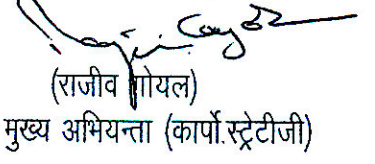 (राजीव गोयल)
मुख्य अभियन्ता (कार्पो.स्ट्रेटीजी)